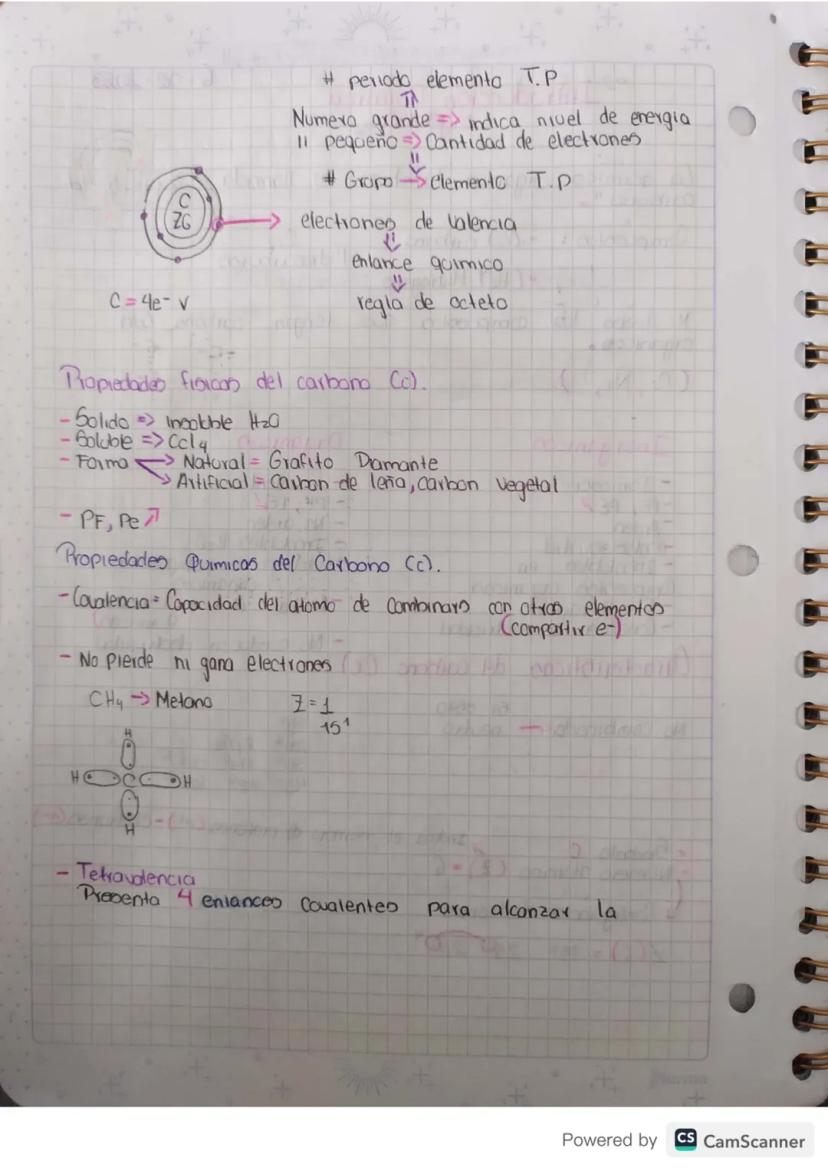 # periodo elemento T.P
⇑
Numero grande => indica nivel de energia
11 pequeño => Cantidad de electrones
⇓
# Grupo → Elemento T.P
C
Z6
→ electrones de valencia
⇓
enlance quimico
⇓
C = 4e- v
regla de octeto
Propiedades fisicas del carbono (c).
- Solido => Insoluble H2O
- Soluble => Ccl4
- Forma → Natural = Grafito Diamante
→ Artificial = Carbon de leña, carbon vegetal
- PF, Pe ↗
Propiedades Quimicas del Carbono (c).
- Covalencia = Capacidad del atomo de combinars con otros elementos
(compartir e-)
- No pierde ni gana electrones
CH4 → Metano
Z = 1
1s1
H
H C H
H
- Tetravalencia
Presenta 4 enlances covalentes para alcanzar la
Powered by CS CamScanner